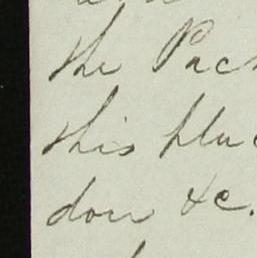 the Pac
this pla
dow &c.